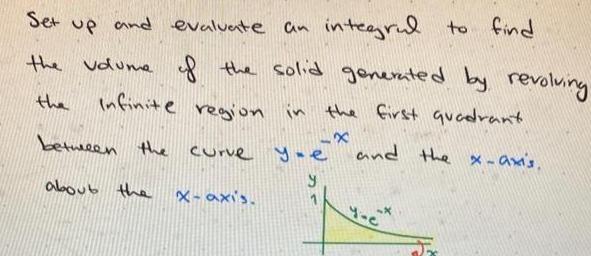 Set up and evaluate an integral to find
the volume of the solid generated by revolving
the infinite region in the first quadrant
between the curve y=e^-x and the x-axis.
about the x-axis.
y
1
y=e^-x
x